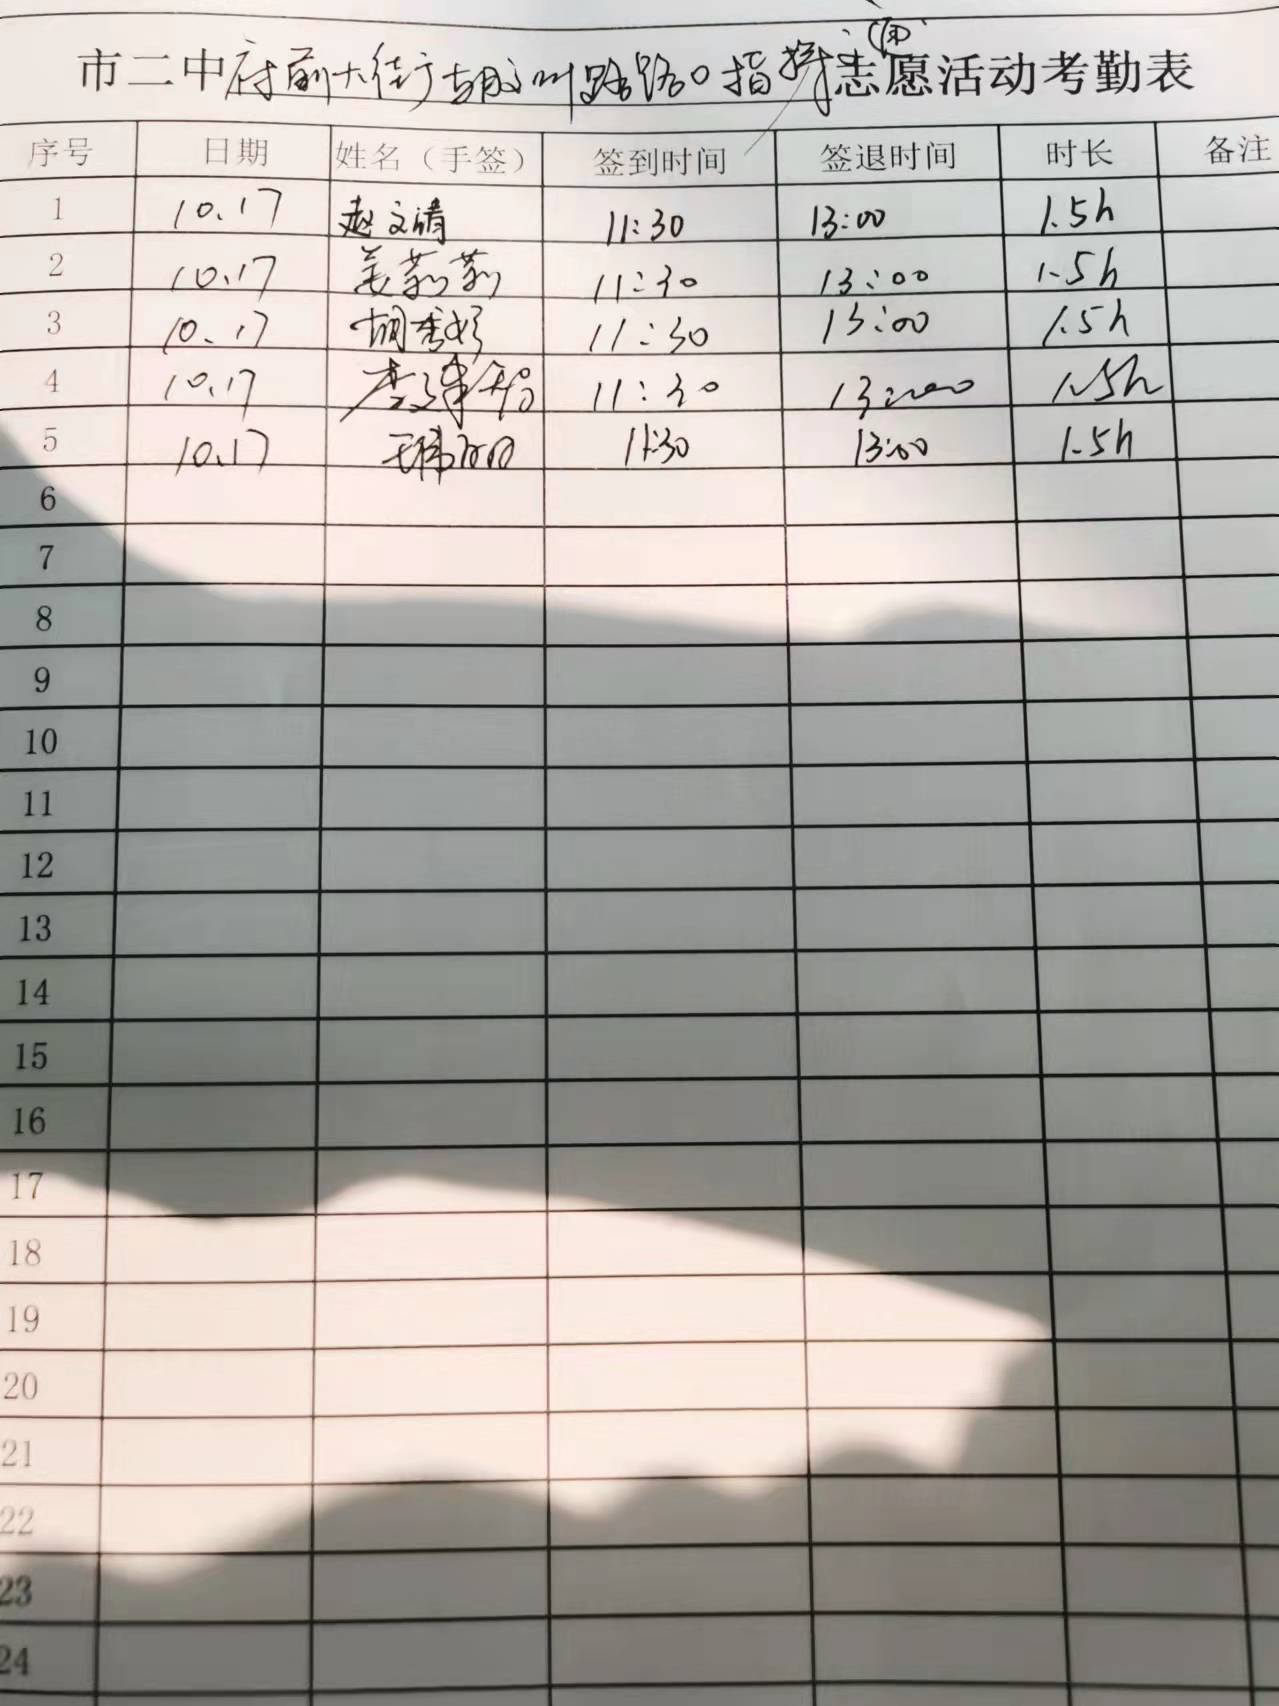 市二中府前大街胡州路路口指挥交通志愿活动考勤表
序号 日期 姓名（手签） 签到时间 签退时间 时长 备注
1 10.17 赵文靖 11:30 13:00 1.5h
2 10.17 姜莉莉 11:30 13:00 1.5h
3 10.17 胡秀 11:30 13:00 1.5h
4 10.17 李 11:30 13:00 1.5h
5 10.17 11:30 13:00 1.5h
6
7
8
9
10
11
12
13
14
15
16
17
18
19
20
21
22
23
24